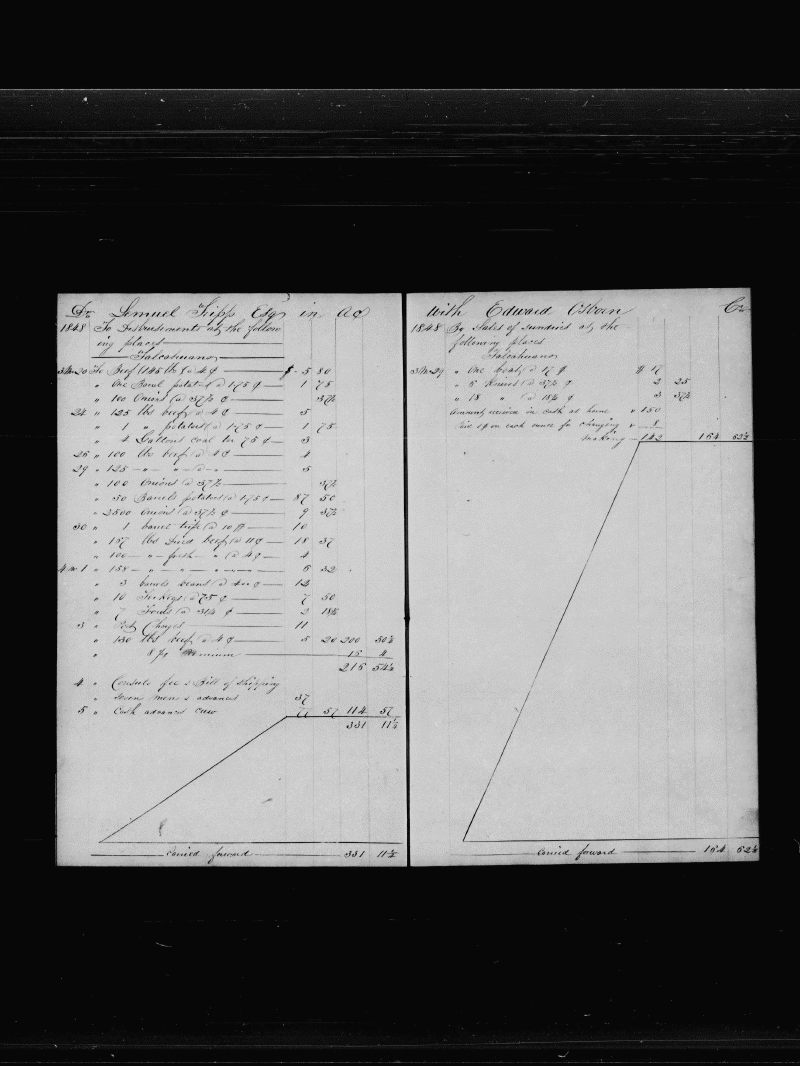 Dr Lemuel Tripp Esqr in ac
1848 To Disbursements at the follow
ing places
Talcahuano
3 M 20 To Beef 145 lb @ 4 ¢ $ 5 80
" One Barrel potatoes @ 1.75 ¢ 1 75
" 100 Onions @ 37½ ¢ 37½
24 " 125 lbs beef @ 4 ¢ 5
" 1 " potatoes @ 1.75 ¢ 1 75
" 4 Gallons 75 ¢ 3
26 " 100 lbs beef @ 4 ¢ 4
29 " 125 " " @ " 5
" 100 Onions @ 37½ 37½
" 50 Barrels potatoes @ 1.75 ¢ 87 50
" 2500 Onions @ 37½ ¢ 9 37½
30 " 1 barrel @ 10 10
" 167 lbs Dried beef @ 11 ¢ 18 37
" 100 " fresh " @ 4 ¢ 4
4 M 1 " 158 " " " " 6 32
" 3 barrels beans @ ¢ 12
" 10 Turkeys @ 75 ¢ 7 50
" 7 Fowls @ 31¼ ¢ 2 18¾
3 " Port Charges 11
" 130 lbs beef @ 4 ¢ 5 20 200 50½
" 8 % 16 4
216 54½
4 " Consuls fee & Bill of Shipping
" Seven mens advances 37
5 " Cash advanced crew 77 57 114 57
331 11½
Carried forward 331 11½
with Edward Osborn Cr
1848 By Sales of Sundries at the
following places
Talcahuano
3 M 29 " One boat @ 17 ¢ $ 17
" 6 Knives @ 37½ ¢ 2 25
" 18 " @ 18¾ ¢ 3 37½
Amount received in Cash at home " 150
on each ounce for changing " 8
making 142 164 62½
Carried forward 164 62½